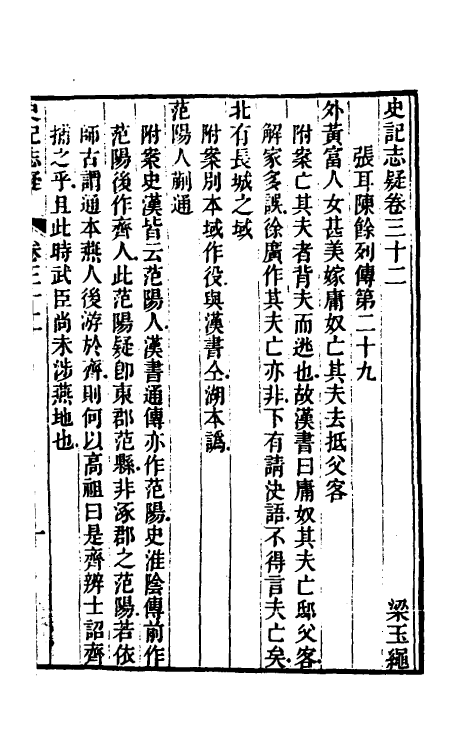 史記志疑卷三十二
梁玉繩
張耳陳餘列傳第二十九
外黃富人女甚美嫁庸奴亡其夫去抵父客
附案亡其夫者背夫而逃也故漢書曰庸奴其夫亡邸父客
解家多誤徐廣作其夫亡亦非下有請決語不得言夫亡矣
北有長城之域
附案別本域作役與漢書仝湖本譌
范陽人蒯通
附案史漢皆云范陽人漢書通傳亦作范陽史淮陰傳前作
范陽後作齊人此范陽疑卽東郡范縣非涿郡之范陽若依
師古謂通本燕人後游於齊則何以高祖曰是齊辨士詔齊
捕之乎且此時武臣尚未涉燕地也
史記志疑
卷三十二
一